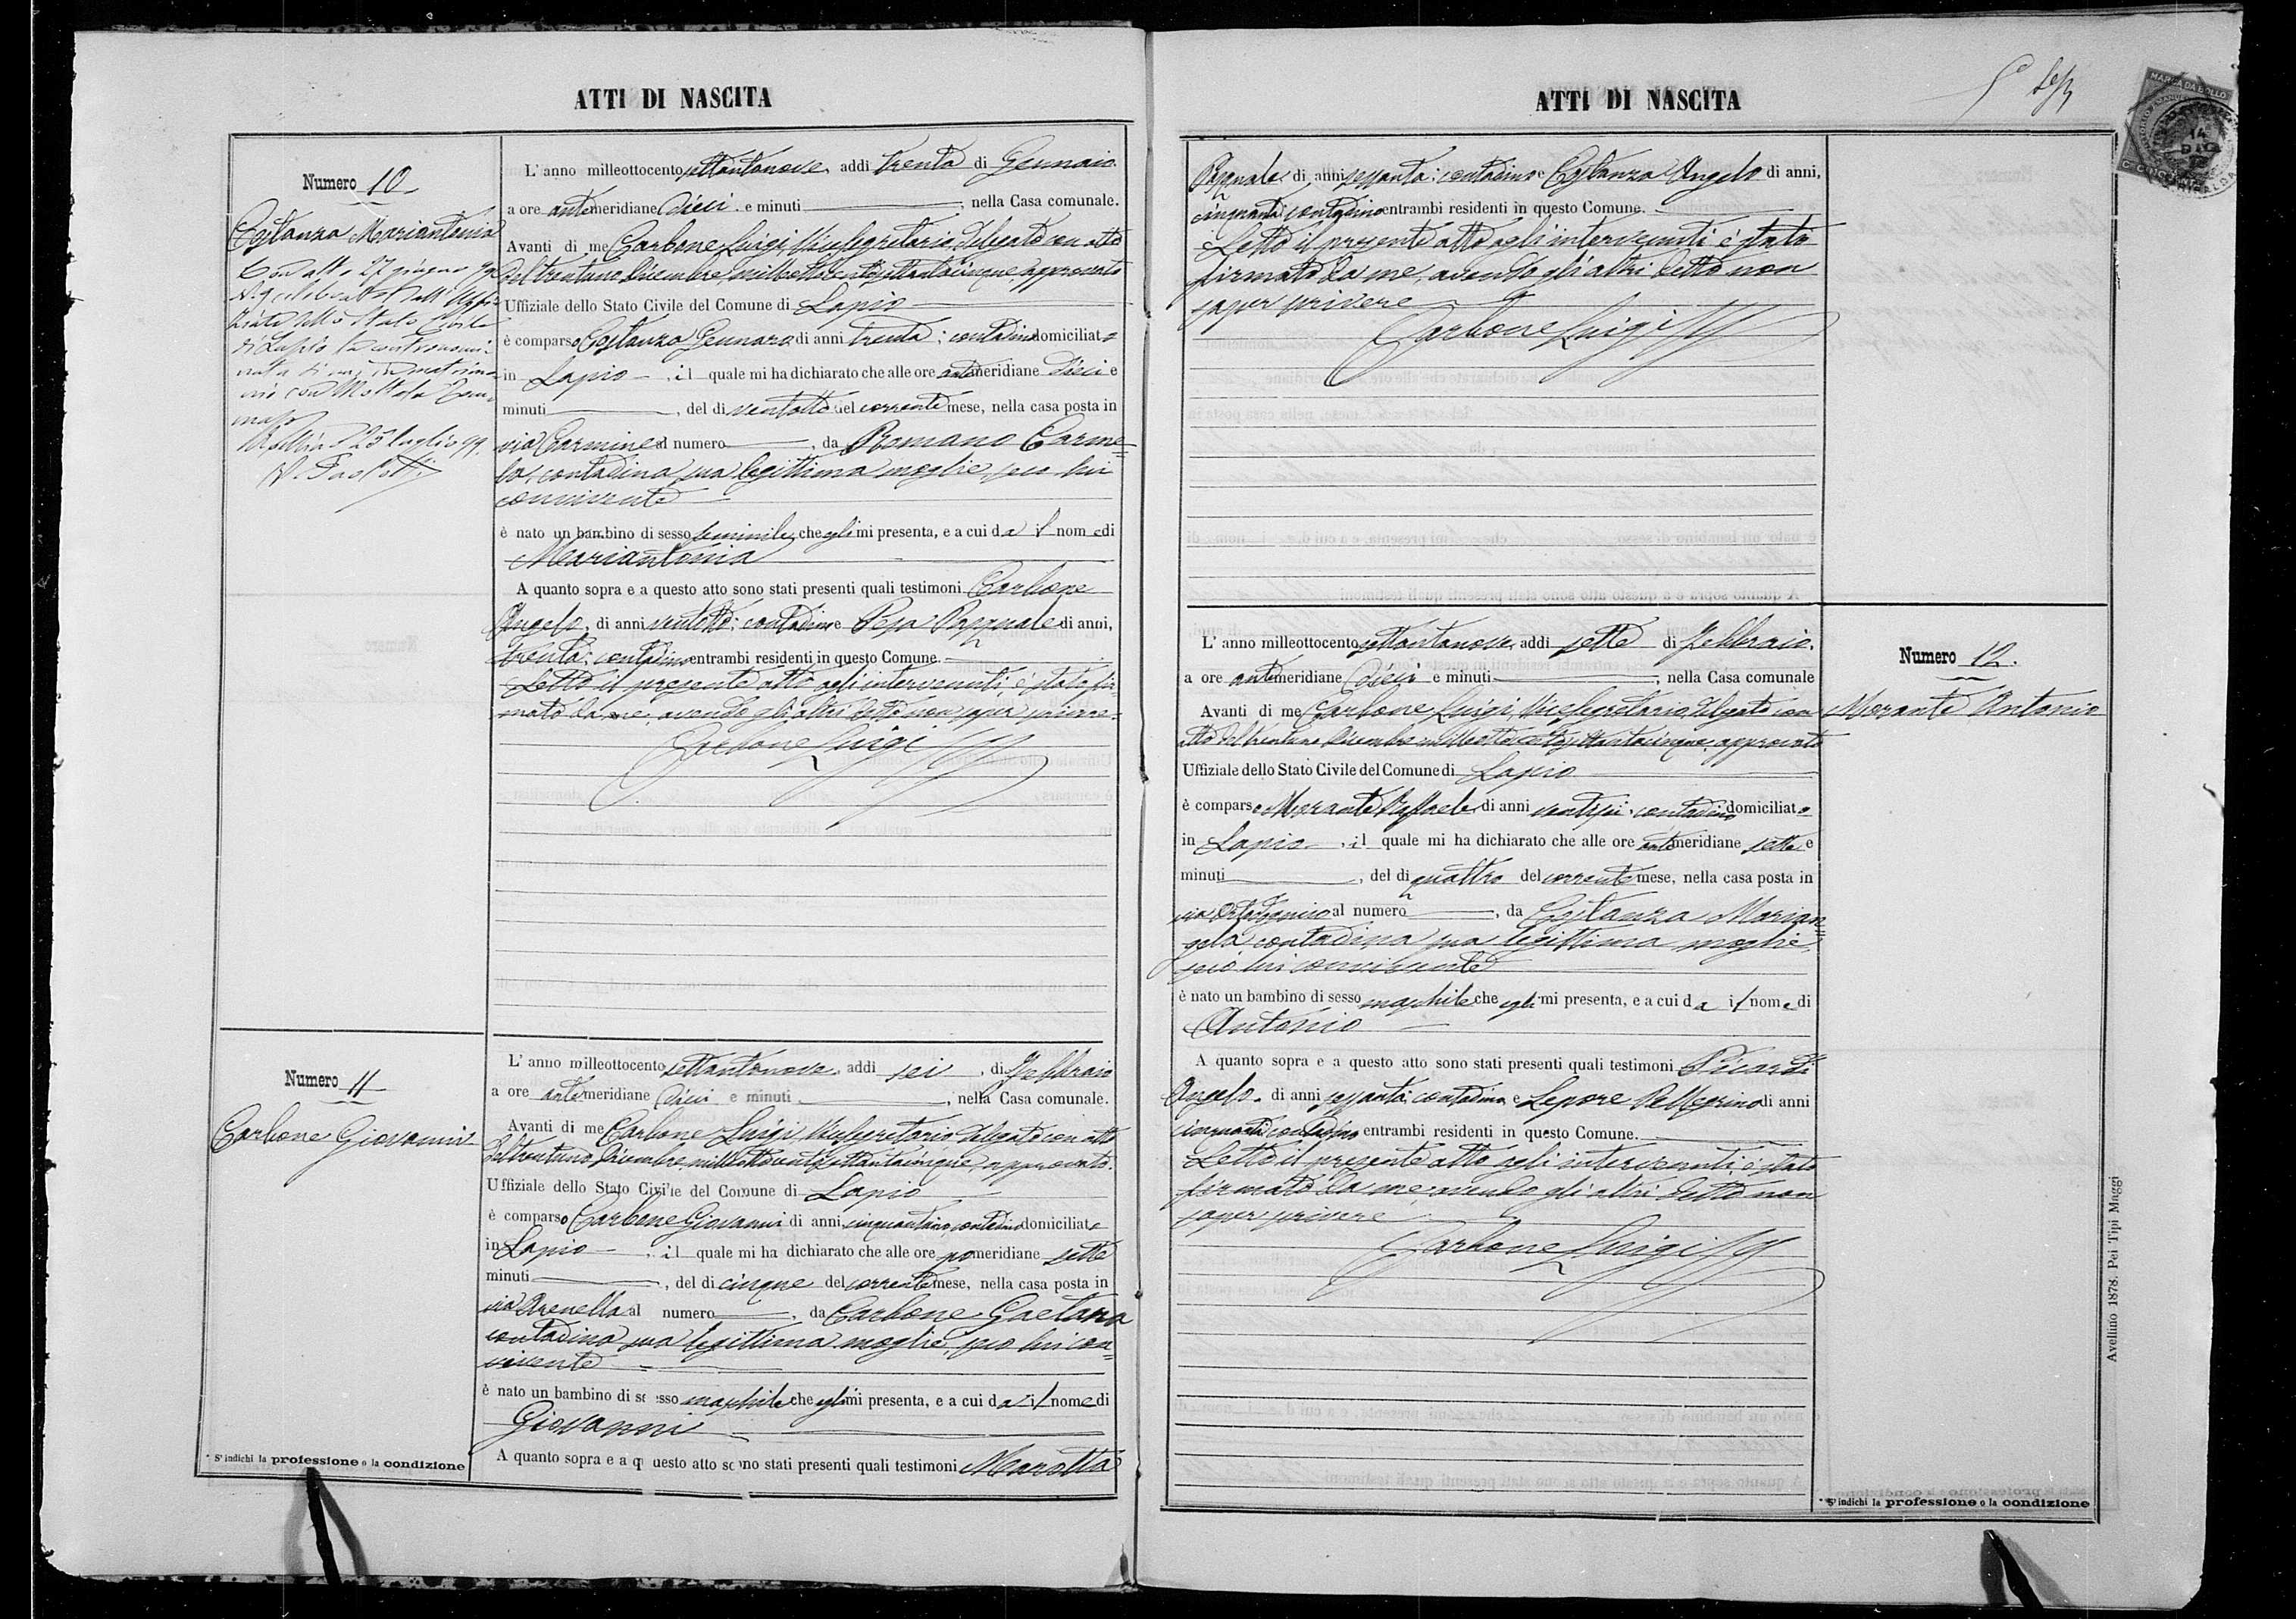 ATTI DI NASCITA
Numero 10
Costanza Mariantonia
Con atto 27 giugno 99
N. 9 celebrato dall' Uffi-
ziale dello Stato Civile
di Lapio la contronomi-
nata si unì in matrimo-
nio con
Avellino 25 luglio 99.
L' anno milleottocento settantanove, addi trenta di Gennaio
a ore antimeridiane dieci e minuti , nella Casa comunale.
Avanti di me Carbone Luigi, Vicesegretario, delegato con atto
del trentuno Dicembre milleottocentosettantacinque, approvato
Uffiziale dello Stato Civile del Comune di Lapio
è comparso Costanza Gennaro di anni trenta; contadino domiciliato
in Lapio , il quale mi ha dichiarato che alle ore antimeridiane dieci e
minuti , del di ventotto del corrente mese, nella casa posta in
via Carmine al numero , da Romano Carme=
la, contadina sua legittima moglie, seco lui
convivente
è nato un bambino di sesso feminile che egli mi presenta, e a cui da il nome di
Mariantonia
A quanto sopra e a questo atto sono stati presenti quali testimoni Carbone
Angelo, di anni ventotto; contadino e Pepa Pasquale di anni,
trenta; contadino entrambi residenti in questo Comune.
Letto il presente atto agli intervenuti, è stato fir
mato da me, avendo gli altri detto non saper scrivere.
Carbone Luigi
Numero 11
Carbone Giovanni
L' anno milleottocento settantanove, addi sei , di Febbraio
a ore antimeridiane dieci e minuti , nella Casa comunale.
Avanti di me Carbone Luigi, Vicesegretario, delegato con atto
del trentuno Dicembre milleottocentosettantacinque, approvato.
Uffiziale dello Stato Civile del Comune di Lapio
è comparso Carbone Giovanni di anni cinquantuno, contadino domiciliato
in Lapio , il quale mi ha dichiarato che alle ore pomeridiane sette
minuti , del di cinque del corrente mese, nella casa posta in
via Arenella al numero , da Carbone Gaetana
contadina sua legittima moglie, seco lui con=
vivente
è nato un bambino di sesso maschile che egli mi presenta, e a cui da il nome di
Giovanni
A quanto sopra e a questo atto sono stati presenti quali testimoni Marotta
* S' indichi la professione o la condizione
ATTI DI NASCITA
MARCA DA BOLLO
14
Pasquale di anni sessanta; contadino e Costanza Angelo di anni,
cinquanta contadino entrambi residenti in questo Comune.
Letto il presente atto agli intervenuti è stato
firmato da me, avendo gli altri detto non
saper scrivere
Carbone Luigi
L' anno milleottocento settantanove, addi sette di Febbraio.
a ore antimeridiane dieci e minuti , nella Casa comunale
Avanti di me Carbone Luigi, Vicesegretario, delegato con
atto del trentuno Dicembre milleottocentosettantacinque, approvato
Uffiziale dello Stato Civile del Comune di Lapio
è comparso Morante Raffaele di anni ventisei; contadino domiciliato
in Lapio , il quale mi ha dichiarato che alle ore antimeridiane sette e
minuti , del di quattro del corrente mese, nella casa posta in
via al numero , da Costanza Marian=
gela contadina sua legittima moglie,
seco lui convivente
è nato un bambino di sesso maschile che egli mi presenta, e a cui da il nome di
Antonio
A quanto sopra e a questo atto sono stati presenti quali testimoni Picardi
Angelo, di anni sessanta; contadino e Lepore Pellegrino di anni
cinquanta contadino entrambi residenti in questo Comune.
Letto il presente atto agli intervenuti, è stato
firmato da me avendo gli altri detto non
saper scrivere
Carbone Luigi
Numero 12.
Morante Antonio
Avellino 1878. Pei Tipi Maggi
* S' indichi la professione o la condizione